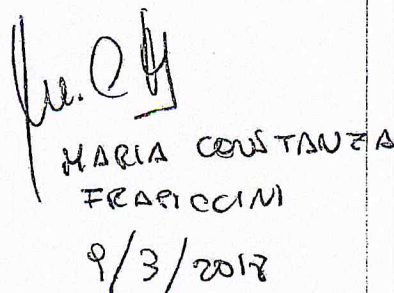 MARIA CONSTANZA
FRAPICCINI
9/3/2018